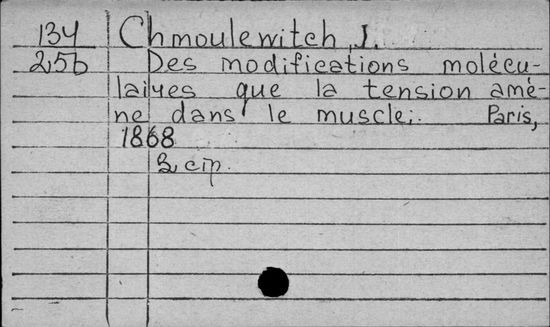 134 Chmoulewitch J.
256 Des modifications molécu-
laires que la tension amè-
ne dans le muscle; Paris,
1868
2 cip.